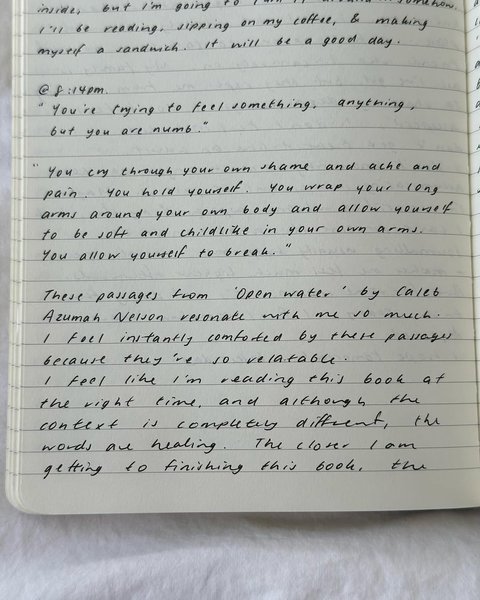 inside, but I'm going to turn it around somehow.
I'll be reading, sipping on my coffee, & making
myself a sandwich. It will be a good day.
@ 8:14pm.
"You're trying to feel something, anything,
but you are numb."
"You cry through your own shame and ache and
pain. You hold yourself. You wrap your long
arms around your own body and allow yourself
to be soft and childlike in your own arms.
You allow yourself to break."
These passages from 'Open Water' by Caleb
Azumah Nelson resonate with me so much.
I feel instantly comforted by these passages
because they're so relatable.
I feel like I'm reading this book at
the right time, and although the
context is completely different, the
words are healing. The closer I am
getting to finishing this book, the